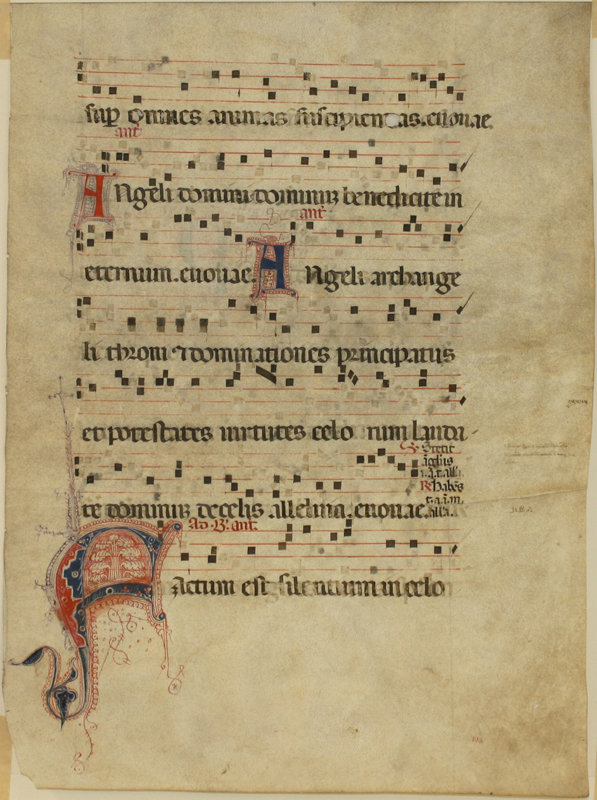 sup omnes animas suscipiendas. euouae.
ant
Angeli domini dominum benedicite in
ant
eternum. euouae. Angeli archange
li throni et dominationes principatus
et potestates uirtutes celo rum lauda
te dominum de celis alleluia. euouae.
Ad B. ant.
Factum est silentium in celo